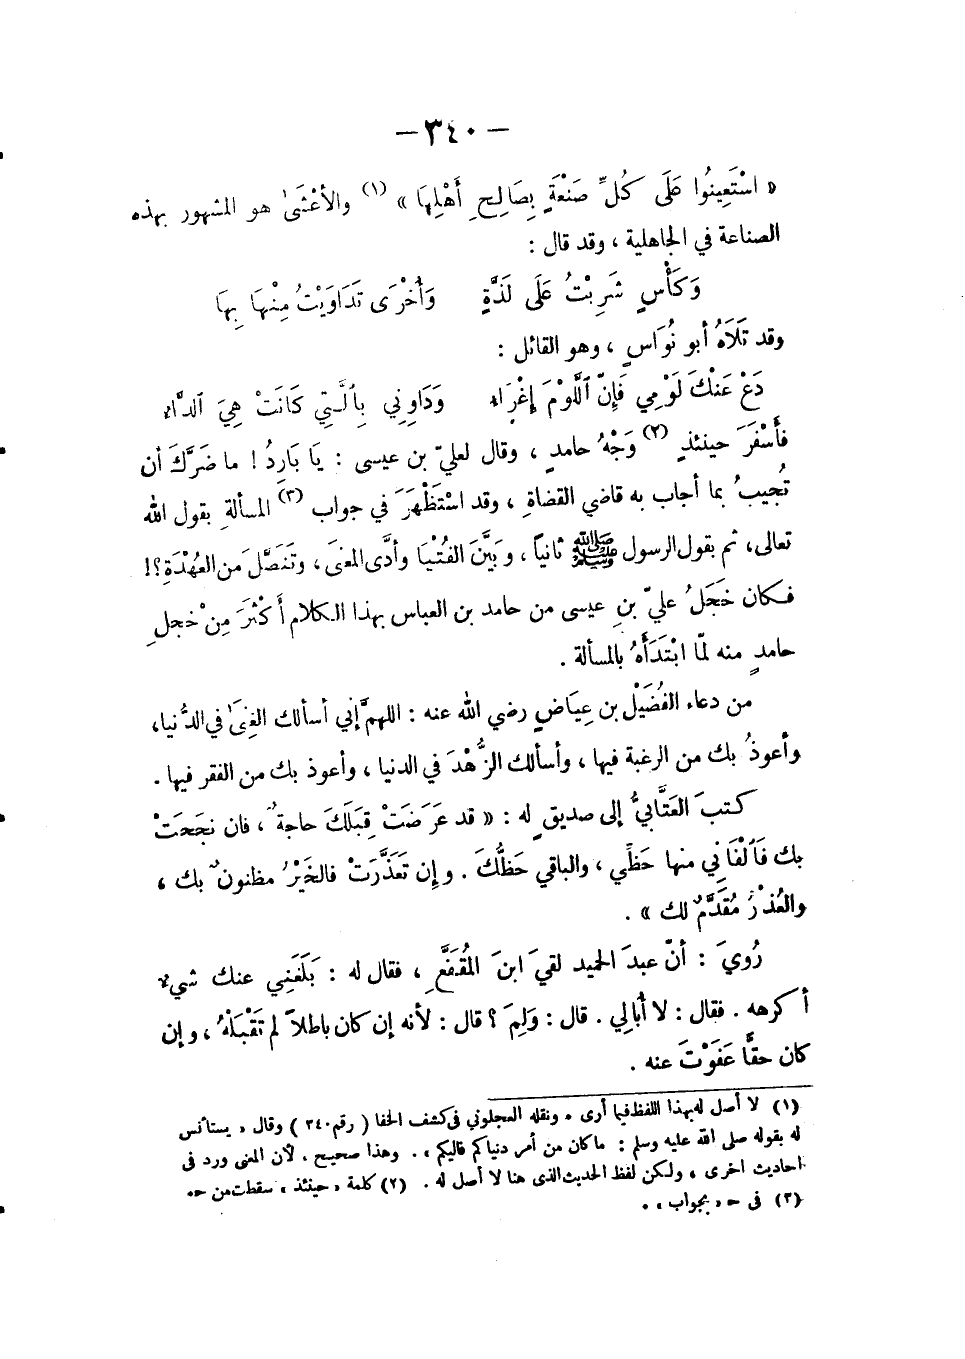 — ٣٤٠ —
« اسْتَعِينُوا عَلَى كُلِّ صَنْعَةٍ بِصَالِحِ أَهْلِهَا » (١) والأعْشَىٰ هو المشهور بهذه
الصناعة في الجاهلية ، وقد قال :
وَكَأْسٍ شَرِبْتُ عَلَى لَذَّةٍ وَأُخْرَى تَدَاوَيْتُ مِنْهَا بِهَا
وقد تَلَاهُ أبو نُوَاسٍ ، وهو القائل :
دَعْ عَنْكَ لَوْمِي فَإِنّ ٱللَّوْمَ إِغْرَاء وَدَاوِنِي بِٱلَّتِي كَانَتْ هِيَ ٱلدَّاء
فأسْفَرَ حينئذٍ (٢) وَجْهُ حامدٍ ، وقال لعليّ بن عيسى : يَا بَارِدُ ! ما ضَرَّكَ أن
تُجيبُ بما أجاب به قاضي القضاةِ ، وقد اسْتَظْهَرَ في جواب (٣) المسألةِ بقول الله
تعالى، ثم بقول الرسول ﷺ ثانياً ، وَبَيَّنَ الفُتْيَا وأدَّى المعنىَ ، وتَنَصَّلَ من العُهْدَةِ ؟!
فكان خَجَلُ عليّ بنِ عيسى من حامد بن العباس بهذا الكلام أَكْثَرَ مِنْ خجلِ
حامدٍ منه لمّا ابْتَدَأَهُ بالمسألة .
من دعاء الفُضَيْل بن عِيَاضٍ رضي الله عنه : اللهمَّ إني أسألك الغِنَىٰ في الدُّنيا،
وأعوذُ بك من الرغبة فيها ، وأسألك الزُّهْدَ في الدنيا ، وأعوذ بك من الفقر فيها .
كتبَ العَتَّابيُّ إلى صديقٍ له : « قد عَرَضَتْ قِبَلَكَ حاجةٌ ، فان نجَحَتْ
بك فَٱلْفَانِي منها حَظِّي ، والباقي حَظُّكَ . وإِن تَعَذَّرَتْ فالخَيْرُ مظنونٌ بك ،
والعُذْرُ مُقَدَّمٌ لك » .
رُوِيَ : أنّ عبدَ الحميد لقيَ ابنَ المُقَفَّعِ ، فقال له : بَلَغَنِي عنك شيء
أكرهه . فقال : لا أُبالِي . قال : وَلِمَ ؟ قال : لأنه إن كان باطلاً لم تَقْبَلْهُ ، وإن
كان حقًّا عَفَوْتَ عنه .
(١) لا أصل له بهذا اللفظ فيما أرى . ونقله العجلوني في كشف الخفا ( رقم ٣٤٠ ) وقال « يستأنس
له بقوله صلى الله عليه وسلم : ما كان من أمر دنياكم فاليكم » . وهذا صحيح ، لأن المعنى ورد في
احاديث اخرى ، ولكن لفظ الحديث الذى هنا لا أصل له . (٢) كلمة « حينئذ » سقطت من ح .
(٣) في ح « بجواب » .